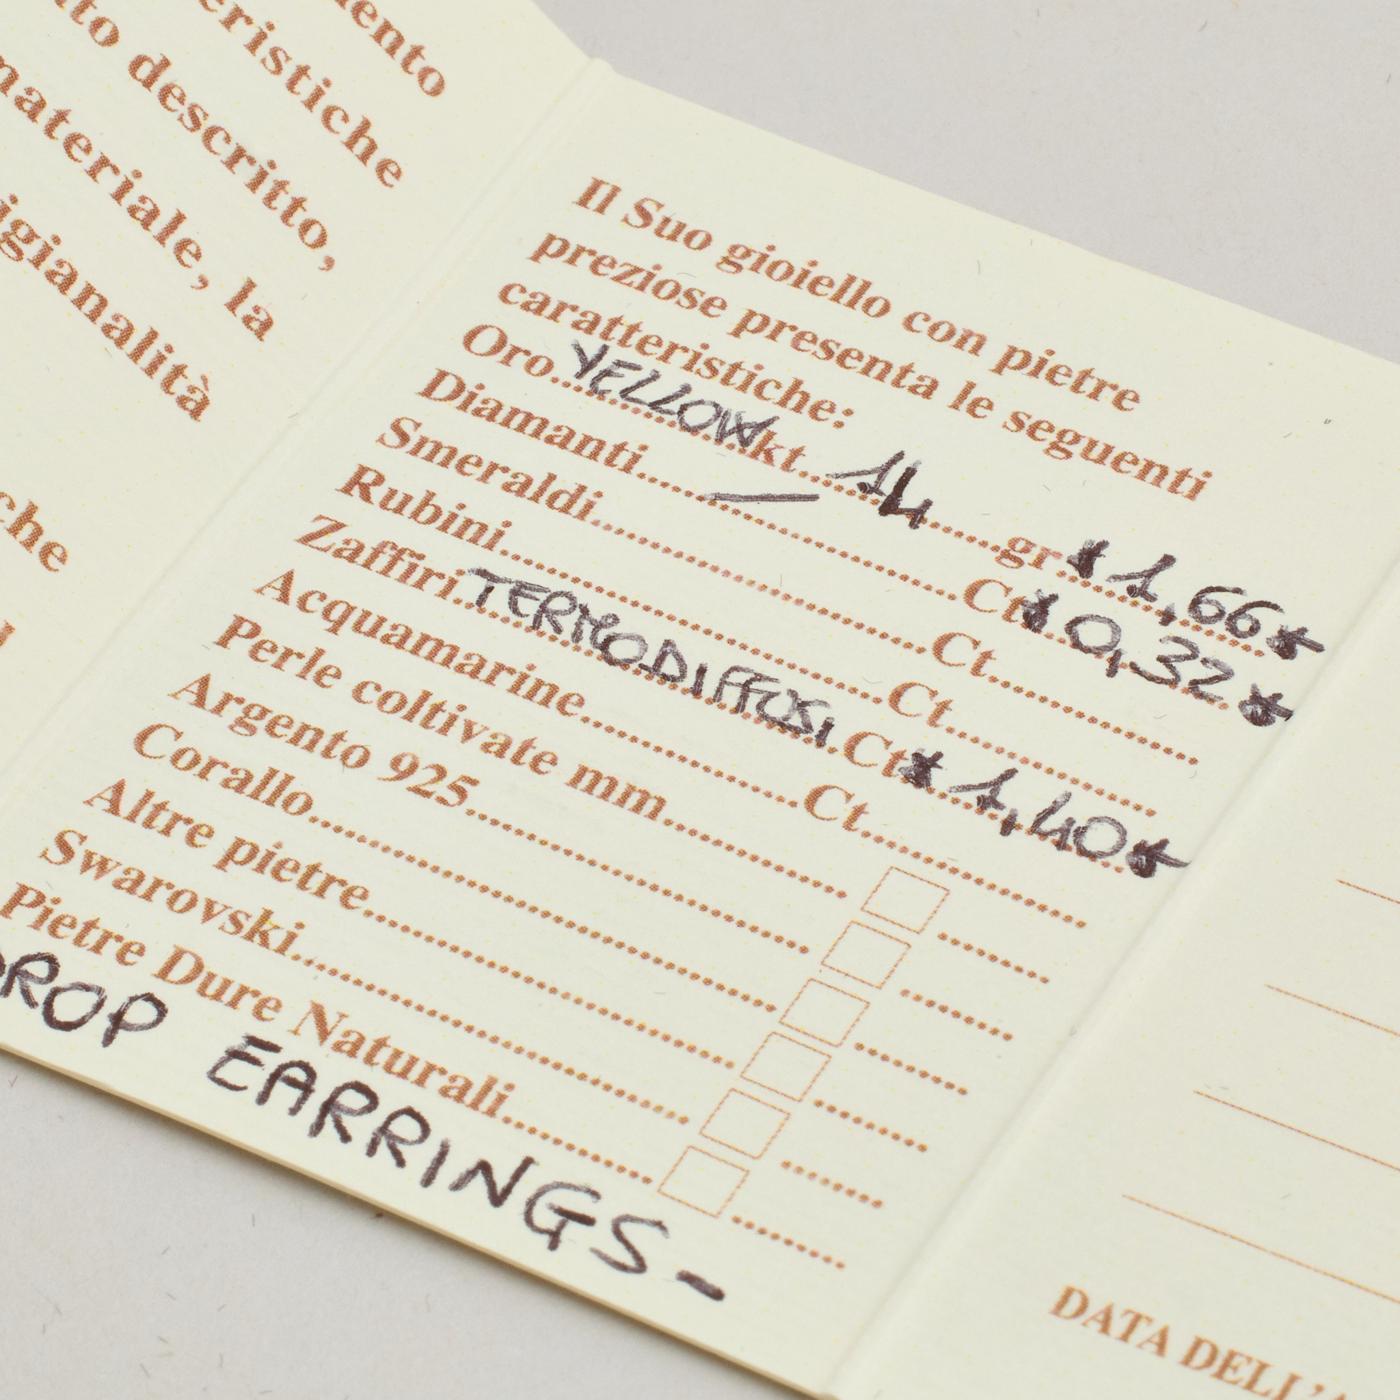 ento
eristiche
to descritto,
materiale, la
igianalità
che
Il Suo gioiello con pietre
preziose presenta le seguenti
caratteristiche:
Oro...YELLOW kt...14......gr.*1,66*
Diamanti.....—..........Ct*0,32*
Smeraldi....................Ct....................
Rubini....................Ct....................
Zaffiri..TERMODIFFUSI.Ct*1,40*
Acquamarine....................Ct....................
Perle coltivate mm....................☐..........
Argento 925....................☐..........
Corallo....................☐..........
Altre pietre....................☐..........
Swarovski....................☐..........
Pietre Dure Naturali....................☐..........
DROP EARRINGS-
DATA DELL'